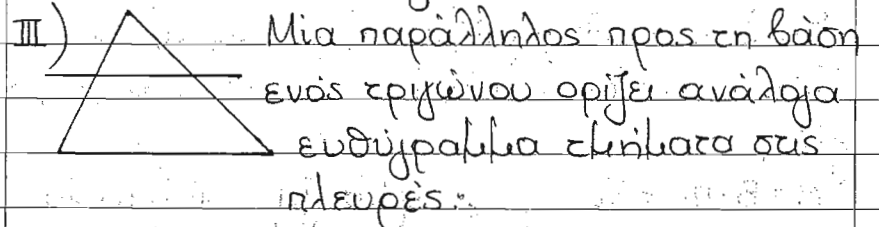 III) Μία παράλληλος προς τη βάση
ενός τριγώνου ορίζει ανάλογα
ευθύγραμμα τμήματα στις
πλευρές.